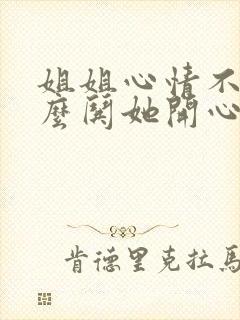 姐姐心情不
麼鬨她開心
肯德里克拉馬